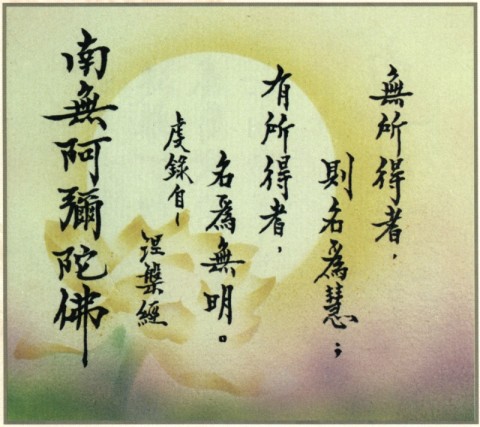 無所得者，
則名為慧；
有所得者，
名為無明。
虔錄自~
涅槃經
南無阿彌陀佛